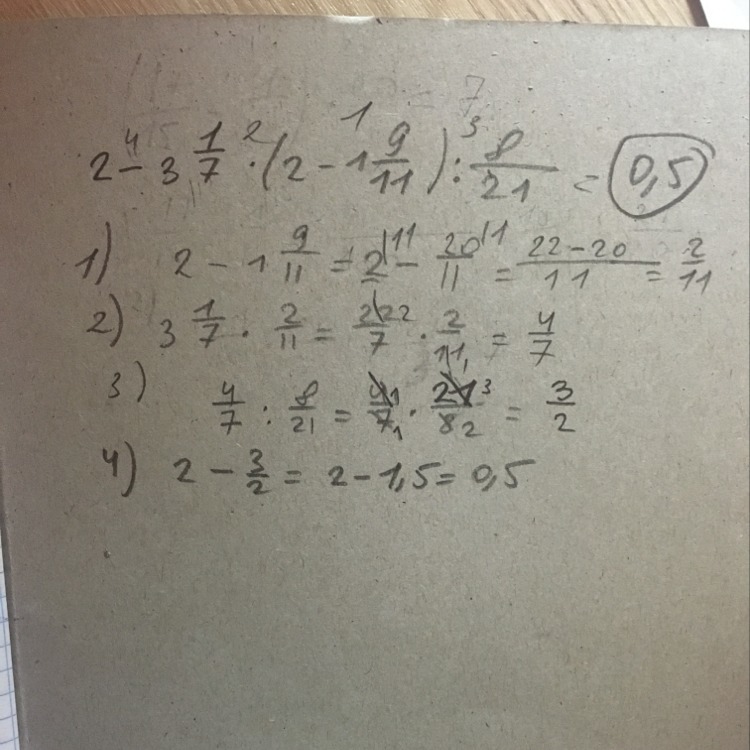 2 - 3 1/7 · (2 - 1 9/11) : 8/21 = 0,5
1) 2 - 1 9/11 = 2 - 20/11 = 22-20/11 = 2/11
2) 3 1/7 · 2/11 = 22/7 · 2/11 = 4/7
3) 4/7 : 8/21 = 4/7 · 21/8 = 3/2
4) 2 - 3/2 = 2 - 1,5 = 0,5